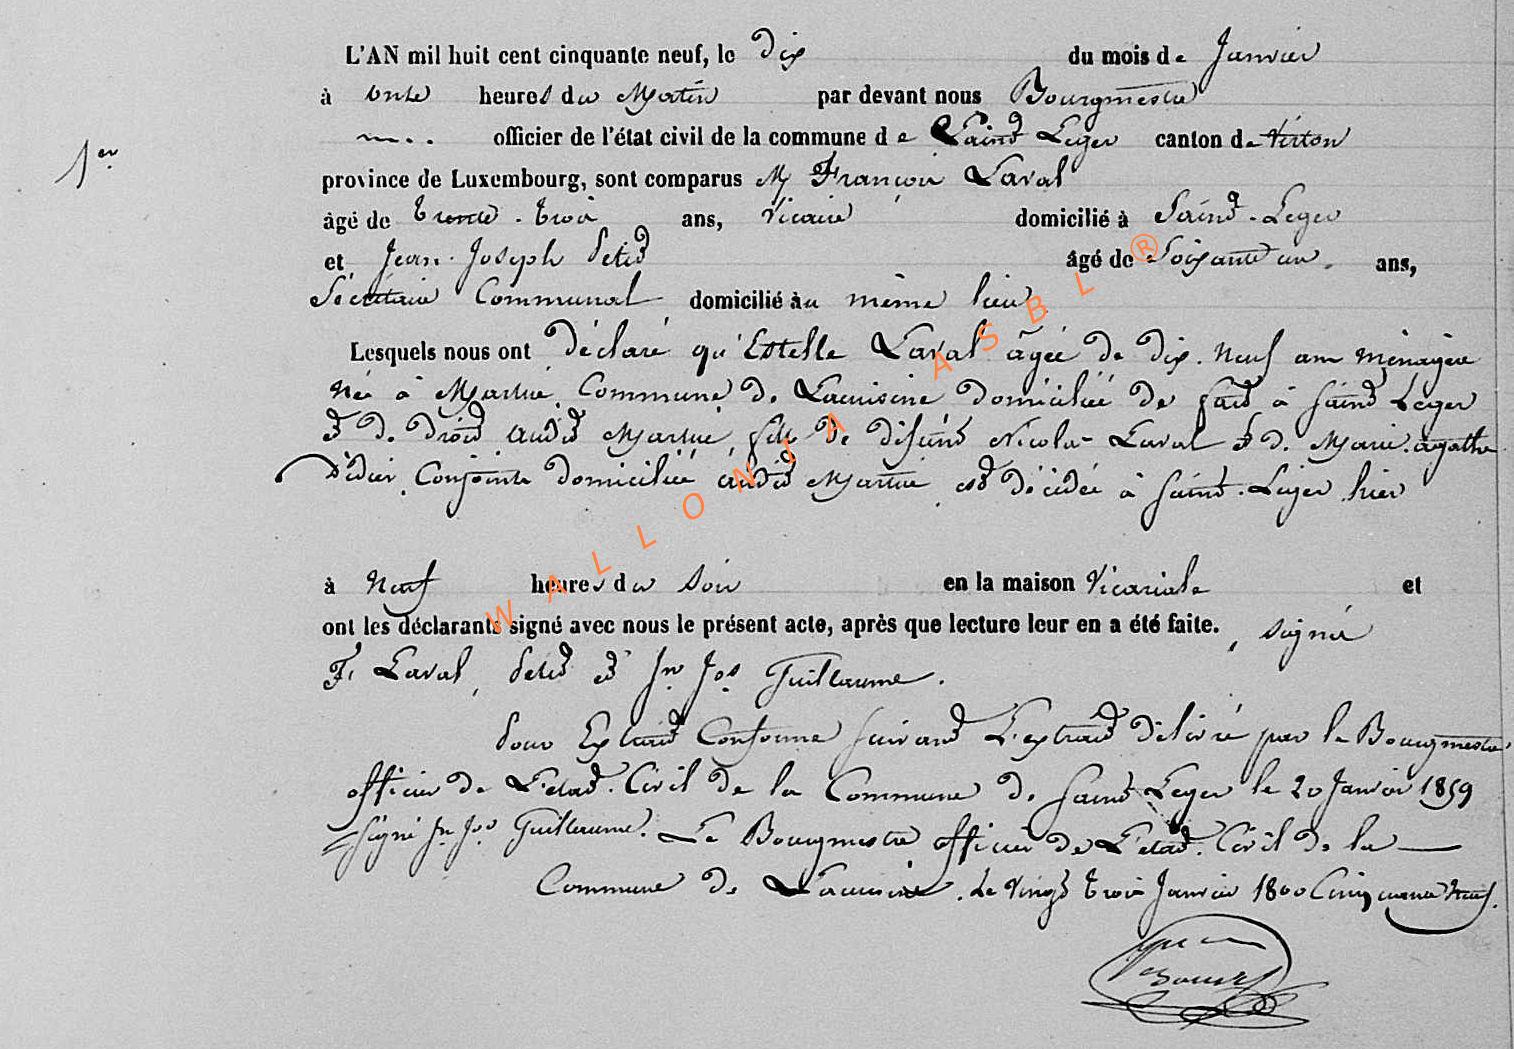 L'AN mil huit cent cinquante neuf, le dix du mois de Janvier
à onze heures du Matin par devant nous Bourgmestre
1er
officier de l'état civil de la commune de Saint Leger canton de Virton
province de Luxembourg, sont comparus M François Laval
âgé de trente-trois ans, Vicaire domicilié à Saint-Leger
et Jean-Joseph Petit âgé de Soixante un ans,
Secrétaire Communal domicilié au même lieu
Lesquels nous ont déclaré qu'Estelle Laval âgée de dix-neuf ans ménagère
née à Martué Commune de Lacuisine domiciliée de fait à Saint Léger
et de droit audit Martué fille de défunt Nicolas Laval et de Marie-agathe
Didier, Conjoints domiciliée audit Martué est décédée à Saint-Leger hier
à Neuf heures du Soir en la maison Vicariale et
ont les déclarants signé avec nous le présent acte, après que lecture leur en a été faite. signé
F. Laval, Petit et Jn Jos Guillaume.
Pour Extrait Conforme suivant L'extrait délivré par le Bourgmestre
officier de L'état-Civil de la Commune de Saint Leger le 20 Janvier 1859
signé Jn Jos Guillaume. Le Bourgmestre officier de L'état-Civil de la
Commune de Lacuisine. Le Vingt trois Janvier 1800 Cinquante Neuf.
WALLONIA ASBL ®